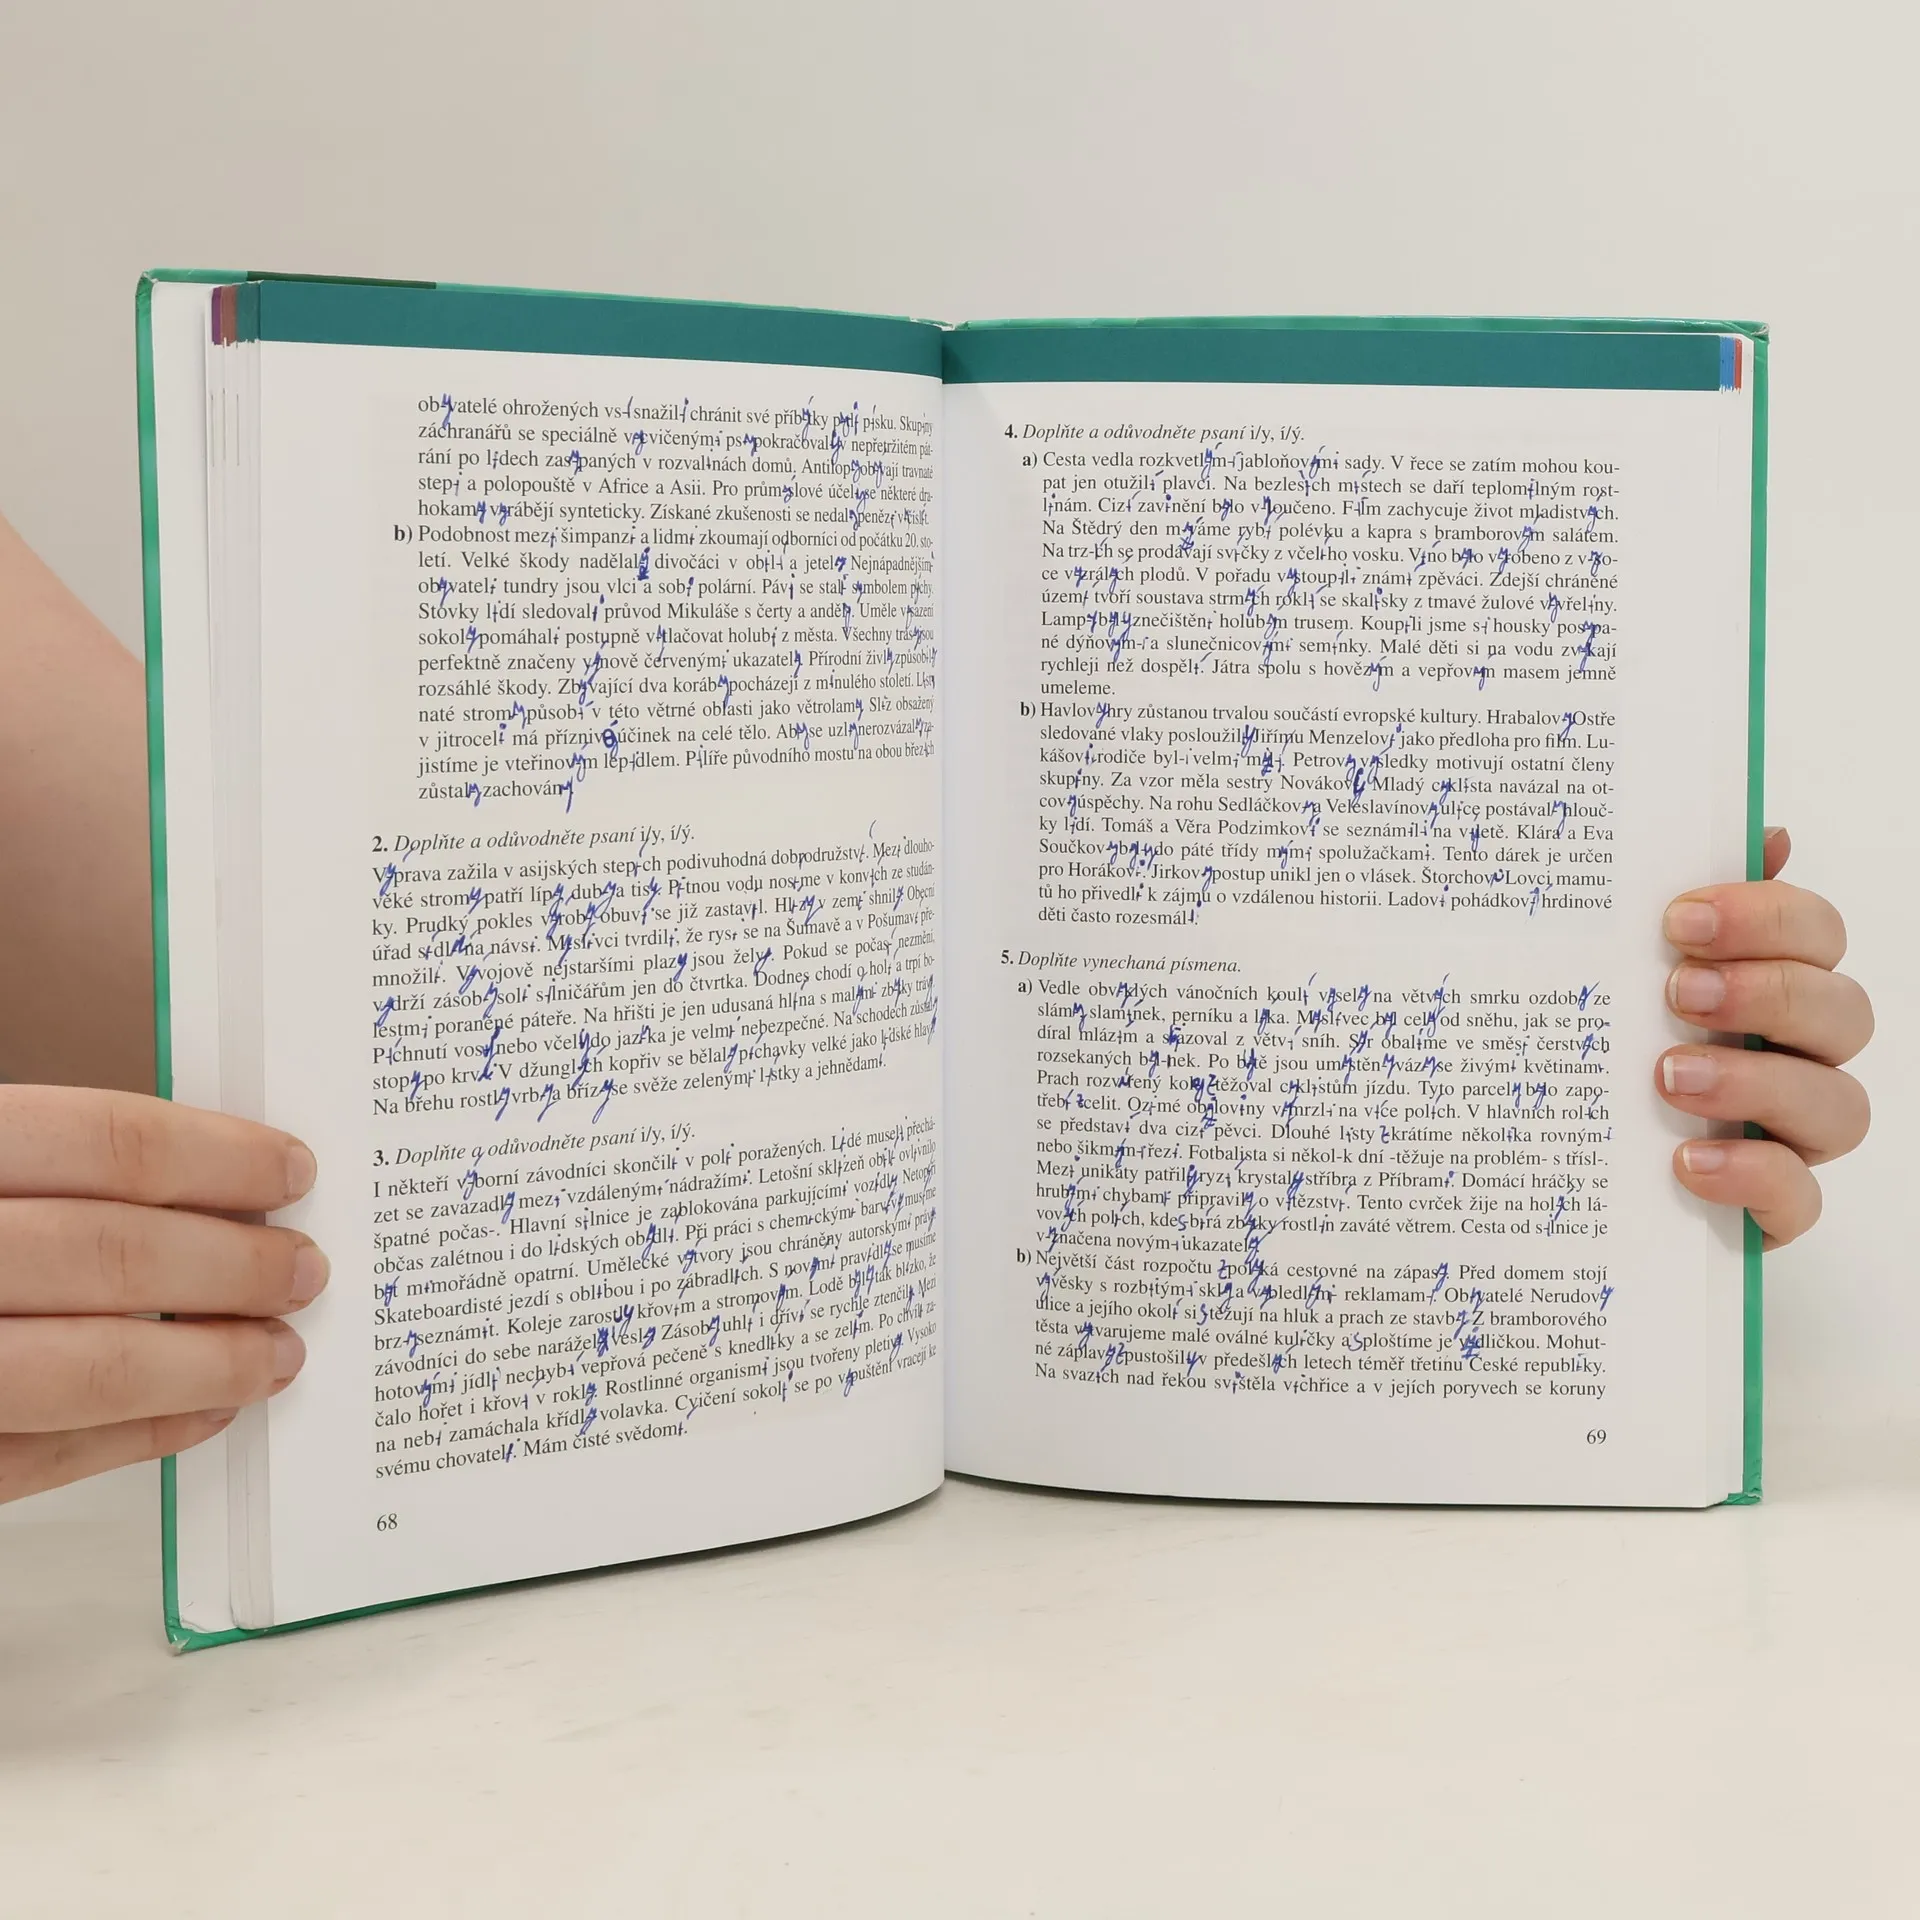 obyvatelé ohrožených vsí snažili chránit své příbytky pytli písku. Skupiny
záchranářů se speciálně vycvičenými psy pokračovaly v nepřetržitém pát-
rání po lidech zasypaných v rozvalinách domů. Antilopy obývají travnaté
stepi a polopouště v Africe a Asii. Pro průmyslové účely se některé dra-
hokamy vyrábějí synteticky. Získané zkušenosti se nedaly penězi vyčíslit.
b) Podobnost mezi šimpanzi a lidmi zkoumají odborníci od počátku 20. sto-
letí. Velké škody nadělali divočáci v obilí a jetely. Nejnápadnějšími
obyvateli tundry jsou vlci a sobi polární. Pávi se stali symbolem pýchy.
Stovky lidí sledovali průvod Mikuláše s čerty a anděly. Uměle vysazení
sokoly pomáhali postupně vytlačovat holubi z města. Všechny trasy jsou
perfektně značeny nově červenými ukazately. Přírodní živly způsobily
rozsáhlé škody. Zbývající dva koráby pocházejí z minulého století. List-
naté stromy působí v této větrné oblasti jako větrolamy. Sliz obsažený
v jitroceli má příznivý účinek na celé tělo. Aby se uzly nerozvázaly, za-
jistíme je vteřinovým lepidlem. Pilíře původního mostu na obou březích
zůstaly zachovány.
2. Doplňte a odůvodněte psaní i/y, í/ý.
Výprava zažila v asijských stepích podivuhodná dobrodružství. Mezi dlouho-
věké stromy patří lípy, duby a tisy. Pitnou vodu nosíme v konvích ze studán-
ky. Prudký pokles výroby obuvi se již zastavil. Hlízy v zemi shnily. Obecní
úřad sídlí na návsi. Myslivci tvrdili, že rysi se na Šumavě a v Pošumaví pře-
množili. Vývojově nejstaršími plazy jsou želvy. Pokud se počasí nezmění,
vydrží zásoby soli silničářům jen do čtvrtka. Dodnes chodí o holi a trpí bo-
lestmi poraněné páteře. Na hřišti je jen udusaná hlína s malými zbytky trávy.
Píchnutí vosy nebo včely do jazyka je velmi nebezpečné. Na schodech zůstaly
stopy po krvi. V džunglích kopřiv se bělaly pýchavky velké jako lidské hlavy.
Na břehu rostly vrby a břízy se svěže zelenými lístky a jehnědami.
3. Doplňte a odůvodněte psaní i/y, í/ý.
I někteří výborní závodníci skončili v poli poražených. Lidé museli přechá-
zet se zavazadly mezi vzdálenými nádražími. Letošní sklizeň obilí ovlivnilo
špatné počas-. Hlavní silnice je zablokována parkujícími vozidly. Netopýři
občas zalétnou i do lidských obydlí. Při práci s chemickými barvivy musíme
být mimořádně opatrní. Umělecké výtvory jsou chráněny autorskými právy.
Skateboardisté jezdí s oblibou i po zábradlích. S novými pravidly se musíme
brzy seznámit. Koleje zarostly křovím a stromovím. Lodě byly tak blízko, že
závodníci do sebe naráželi vesly. Zásoby uhlí i dříví se rychle ztenčily. Mezi
hotovými jídly nechybí vepřová pečeně s knedlíky a se zelím. Po chvíli za-
čalo hořet i křoví v rokli. Rostlinné organismy jsou tvořeny pletivy. Vysoko
na nebi zamáchala křídly volavka. Cvičení sokoli se po vypuštění vracejí ke
svému chovateli. Mám čisté svědomí.
68
4. Doplňte a odůvodněte psaní i/y, í/ý.
a) Cesta vedla rozkvetlými jabloňovými sady. V řece se zatím mohou kou-
pat jen otužilí plavci. Na bezlesých místech se daří teplomilným rost-
linám. Cizí zavinění bylo vyloučeno. Film zachycuje život mladistvých.
Na Štědrý den míváme rybí polévku a kapra s bramborovým salátem.
Na trzích se prodávají svíčky z včelího vosku. Víno bylo vyrobeno z vyso-
ce vyzrálých plodů. V pořadu vystoupili známí zpěváci. Zdejší chráněné
území tvoří soustava strmých roklí se skalisky z tmavé žulové vyvřeliny.
Lampy byly znečištěni holubím trusem. Koupili jsme si housky posypa-
né dýňovými a slunečnicovými semínky. Malé děti si na vodu zvykají
rychleji než dospělí. Játra spolu s hovězím a vepřovým masem jemně
umeleme.
b) Havlovy hry zůstanou trvalou součástí evropské kultury. Hrabalovy Ostře
sledované vlaky posloužily Jiřímu Menzelovi jako předloha pro film. Lu-
kášovi rodiče byli velmi milí. Petrovy výsledky motivují ostatní členy
skupiny. Za vzor měla sestry Novákovy. Mladý cyklista navázal na ot-
covy úspěchy. Na rohu Sedláčkovy a Veleslavínovy ulice postávaly hlouč-
ky lidí. Tomáš a Věra Podzimkovi se seznámili na výletě. Klára a Eva
Součkovy byly do páté třídy mými spolužačkami. Tento dárek je určen
pro Horákovi. Jirkovy postup unikl jen o vlásek. Štorchovi Lovci mamu-
tů ho přivedli k zájmu o vzdálenou historii. Ladovi pohádkoví hrdinové
děti často rozesmáli.
5. Doplňte vynechaná písmena.
a) Vedle obvyklých vánočních koulí visely na větvích smrku ozdoby ze
slámy, slamínek, perníku a lýka. Myslivec byl celý od sněhu, jak se pro-
díral mlázím a srážoval z větví sníh. Sýr obalíme ve směsi čerstvých
rozsekaných bylinek. Po bytě jsou umístěny vázy se živými květinami.
Prach rozvířený koly ztěžoval cyklistům jízdu. Tyto parcely bylo zapo-
třebí zcelit. Ozimé obiloviny vymrzli na více polích. V hlavních rolích
se představí dva cizí pěvci. Dlouhé listy zkrátíme několika rovnými
nebo šikmými řezi. Fotbalista si několi-k dní -těžuje na problém- s třísl-.
Mezi unikáty patřily ryzí krystaly stříbra z Příbrami. Domácí hráčky se
hrubými chybami připravily o vítězství. Tento cvrček žije na holých lá-
vových polích, kde sbírá zbytky rostlin zaváté větrem. Cesta od silnice je
vyznačena novými ukazately.
b) Největší část rozpočtu spolyká cestovné na zápasy. Před domem stojí
vývěsky s rozbitými skly a vybledlými reklamami. Obyvatelé Nerudovy
ulice a jejího okolí si stěžují na hluk a prach ze stavby. Z bramborového
těsta vytvarujeme malé oválné kuličky a sploštíme je vidličkou. Mohut-
né záplavy zpustošily v předešlých letech téměř třetinu České republiky.
Na svazích nad řekou svištěla vichřice a v jejích poryvech se koruny
69